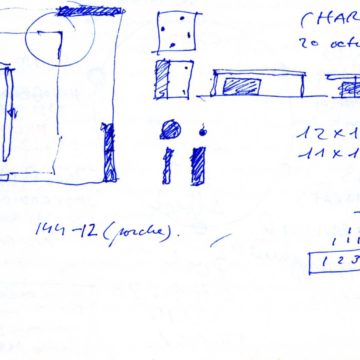 CHAR
20 octu
12x1
11x1
144-12 (porche).
1
11
1 2 3